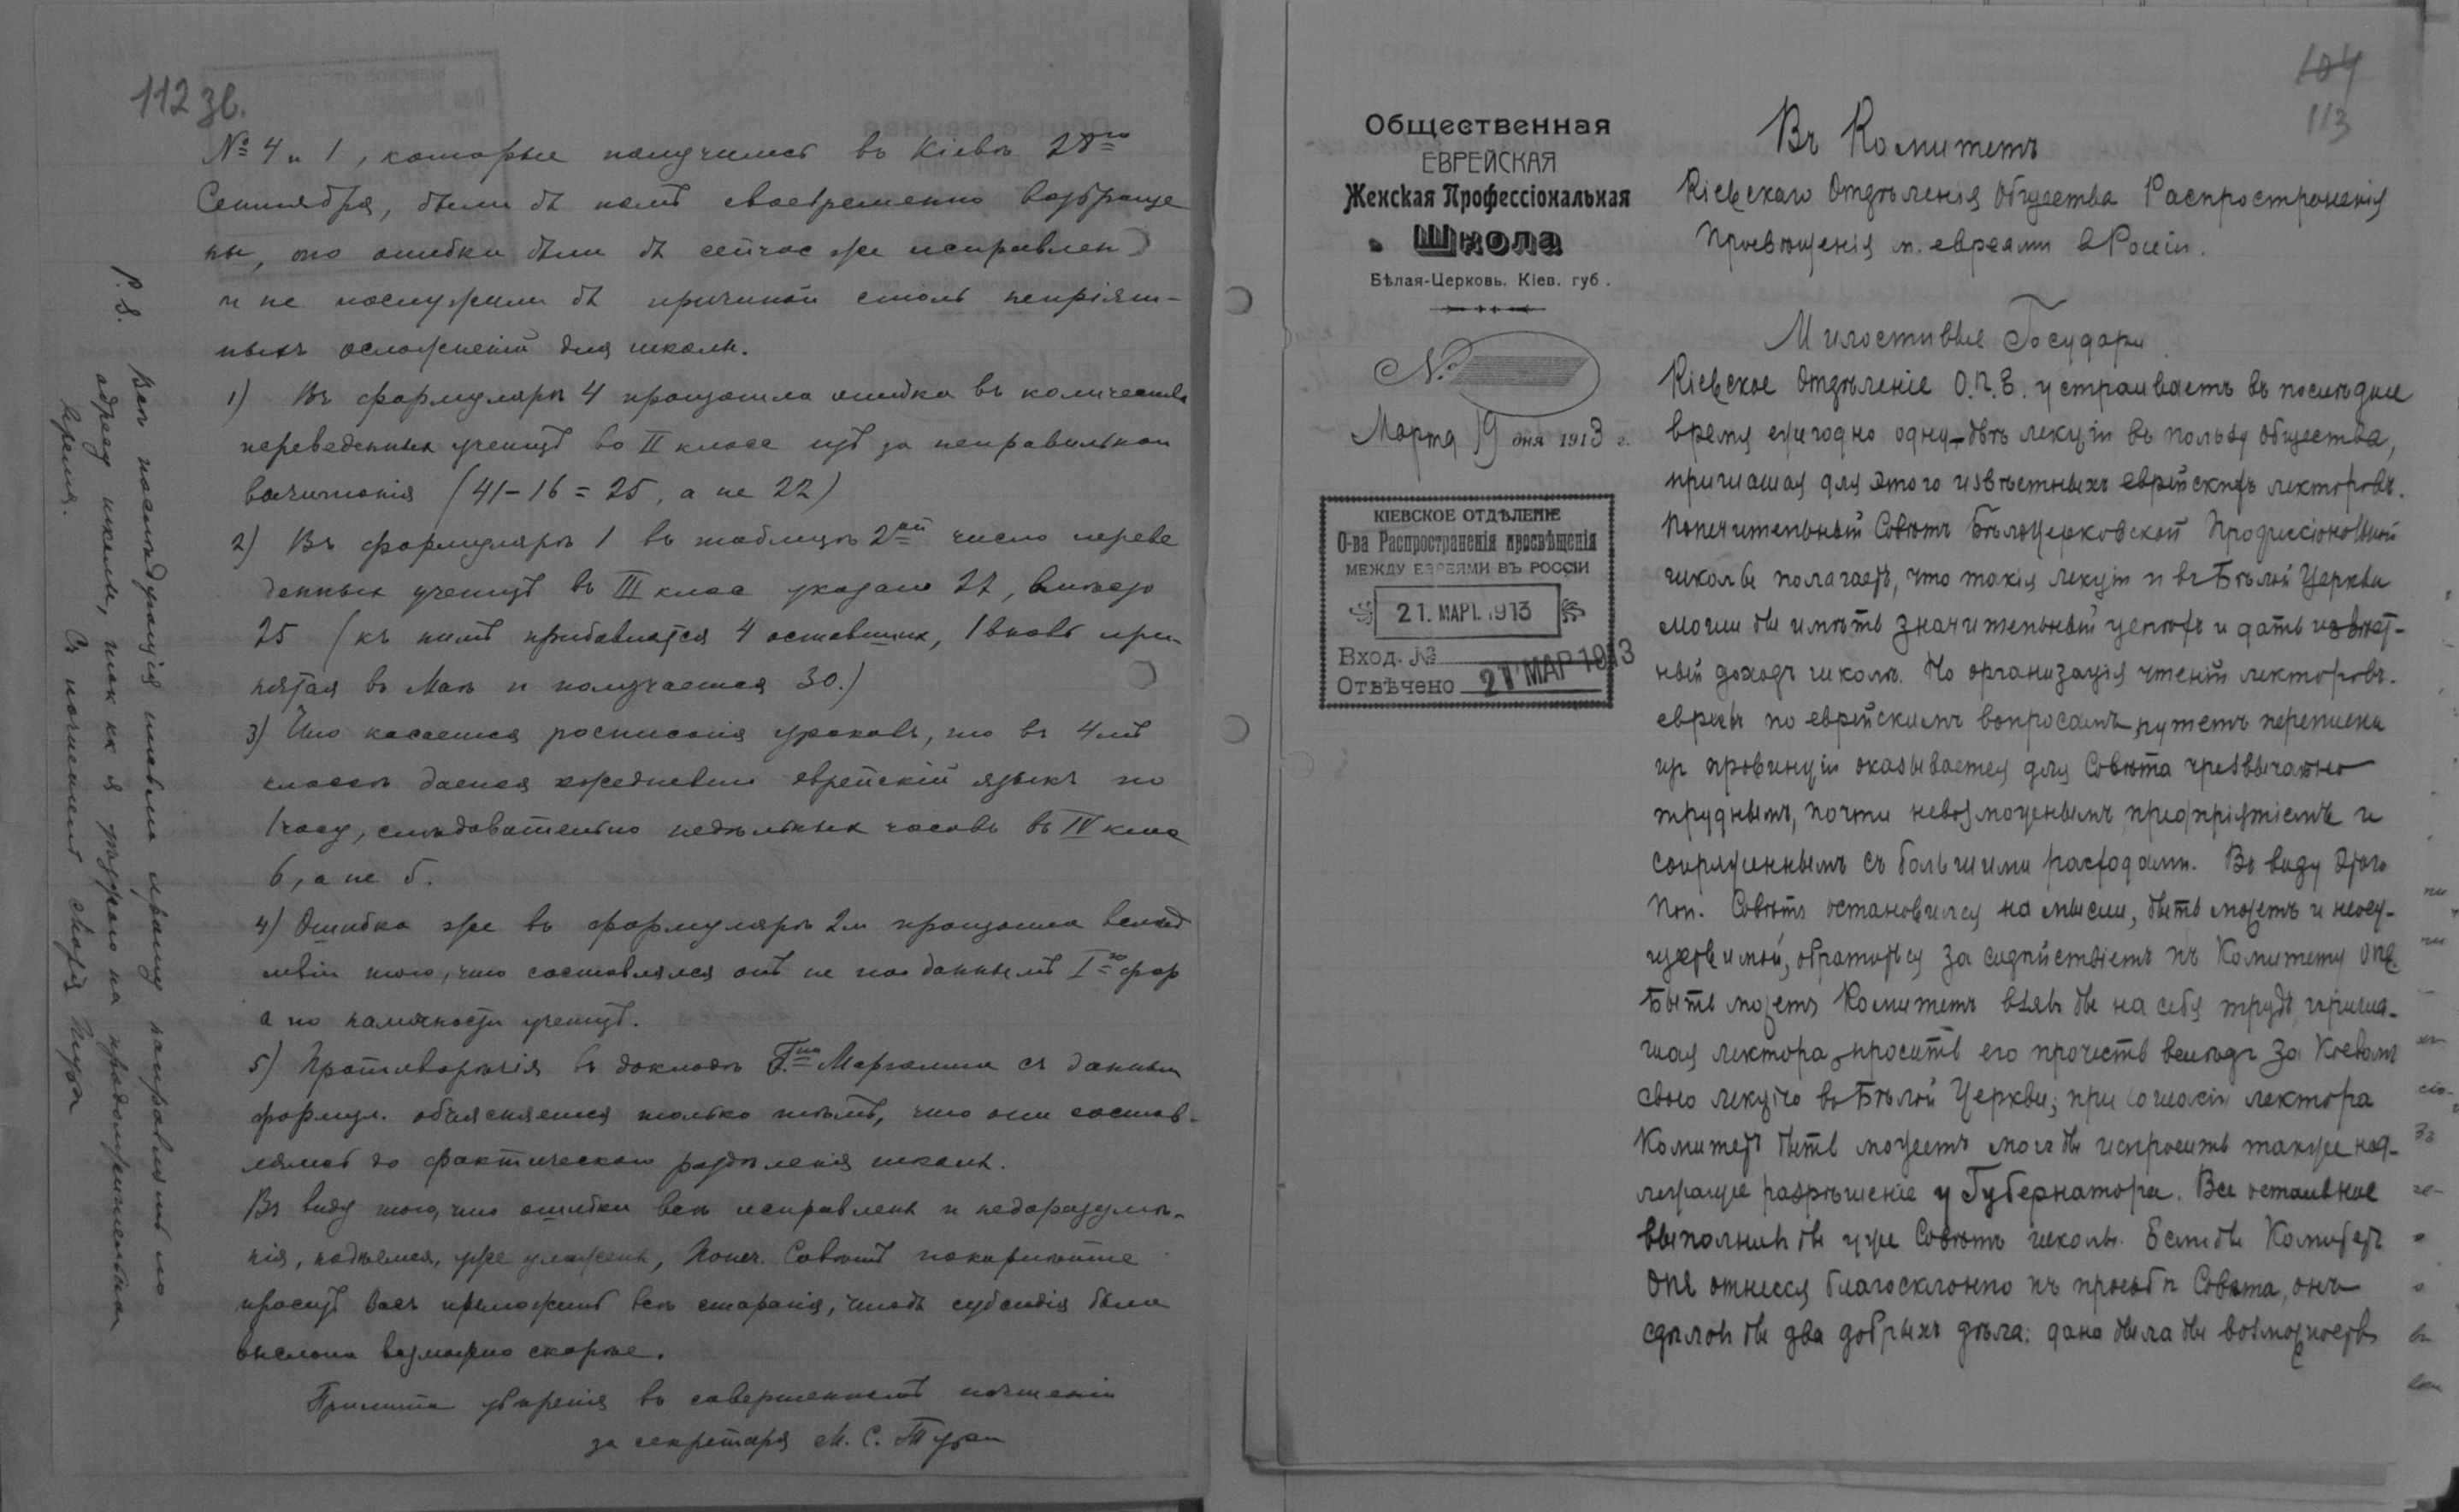 112 зв.
№ 4 и 1, которые получились въ Кіевѣ 28го
Сентября, были бъ намъ своевременно возвраще
ны, то ошибки были бъ сейчас же исправлен
и не послужили бъ причиной столь непріят-
ныхъ осложненій для школы.
1) Въ формулярѣ 4 произошла ошибка въ количествѣ
переведенных учениц во II класс из за неправильнаго
вычитанія (41-16=25, а не 22)
2) Въ формулярѣ 1 въ таблицѣ 2ой число переве
денных учениц въ III класс указано 22, вмѣсто
25 (къ нимъ прибавляется 4 оставшихся, 1 вновь при
нятая въ Маѣ и получается 30.)
3) Что касается росписанія уроковъ, то въ 4мъ
классѣ дается ежедневно еврейскій языкъ по
1 часу, слѣдовательно недѣльных часовъ въ IV клас
6, а не 5.
4) Ошибка же въ формулярѣ 2м произошла вслѣд
ствіи того, что составлялся онъ не по даннымъ I го фор
а по наличности учениц.
5) Противорѣчія въ докладѣ Г.на Марголина съ данным
формул. объясняется только тѣмъ, что они состав-
лялись до фактическаго раздѣленія школы.
Въ виду того, что ошибки всѣ исправлены и недоразумѣ-
нія, надѣемся, уже улажены, Попеч. Совѣтъ покорнѣйше
просит васъ приложить всѣ старанія, чтобъ субсидія была
выслана возможно скорѣе.
Примите увѣренія въ совершенномъ почтеніи
за секретаря М. С.
P. S. Всѣ послѣдующія письма прошу направлять по
адресу школы, так как я уѣзжаю на продолжительное
время. Съ почтеніемъ
104
113
Общественная
ЕВРЕЙСКАЯ
Женская Профессіональная
Школа
Бѣлая-Церковь, Кіев. губ.
№
Марта 19 дня 1913 г.
КІЕВСКОЕ ОТДѢЛЕНІЕ
О-ва Распространенія просвѣщенія
МЕЖДУ ЕВРЕЯМИ ВЪ РОССІИ
21. МАРТ. 1913
Вход. №
Отвѣчено 21 МАР 1913
Въ Комитетъ
Кіевскаго Отдѣленія Общества Распространенія
Просвѣщенія м. евреями в Россіи.
Милостивые Государи
Кіевское Отдѣленіе О.П.Е. устраиваетъ въ послѣднее
время ежегодно одну-двѣ лекціи въ пользу общества,
приглашая для этого извѣстныхъ еврейскихъ лекторовъ.
Попечительный Совѣтъ Бѣлоцерковской Профессіональной
школы полагаетъ, что такія лекціи и въ Бѣлой Церкви
могли бы имѣть значительный успѣхъ и дать извѣст-
ный доходъ школѣ. Но организація чтеній лекторовъ-
евреевъ по еврейскимъ вопросамъ путемъ переписки
из провинціи оказывается для Совѣта чрезвычайно
труднымъ, почти невозможнымъ предпріятіемъ и
сопряженнымъ съ большими расходами. Въ виду этого
Поп. Совѣтъ остановился на мысли, быть можетъ и неосу-
ществимой, обратиться за содѣйствіемъ къ Комитету ОПЕ.
Быть можетъ Комитетъ взялъ бы на себя трудъ, пригла-
шая лектора, просить его прочесть вслѣдъ за Кіевомъ
свою лекцію въ Бѣлой Церкви; при согласіи лектора
Комитетъ быть можетъ могъ бы испросить также над-
лежащее разрѣшеніе у Губернатора. Все остальное
выполнилъ бы уже Совѣтъ школы. Если бы Комитетъ
ОПЕ отнесся благосклонно къ просьбѣ Совѣта, онъ
сдѣлалъ бы два добрыхъ дѣла: дана была бы возможность